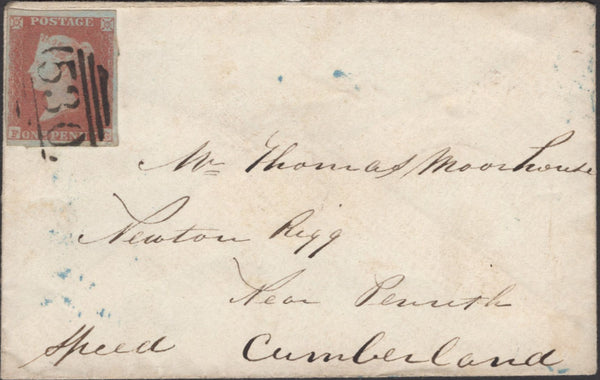 POSTAGE
ONE PENNY
530
Mr Thomas Moorhouse
Newton Rigg
Near Penrith
Speed Cumberland